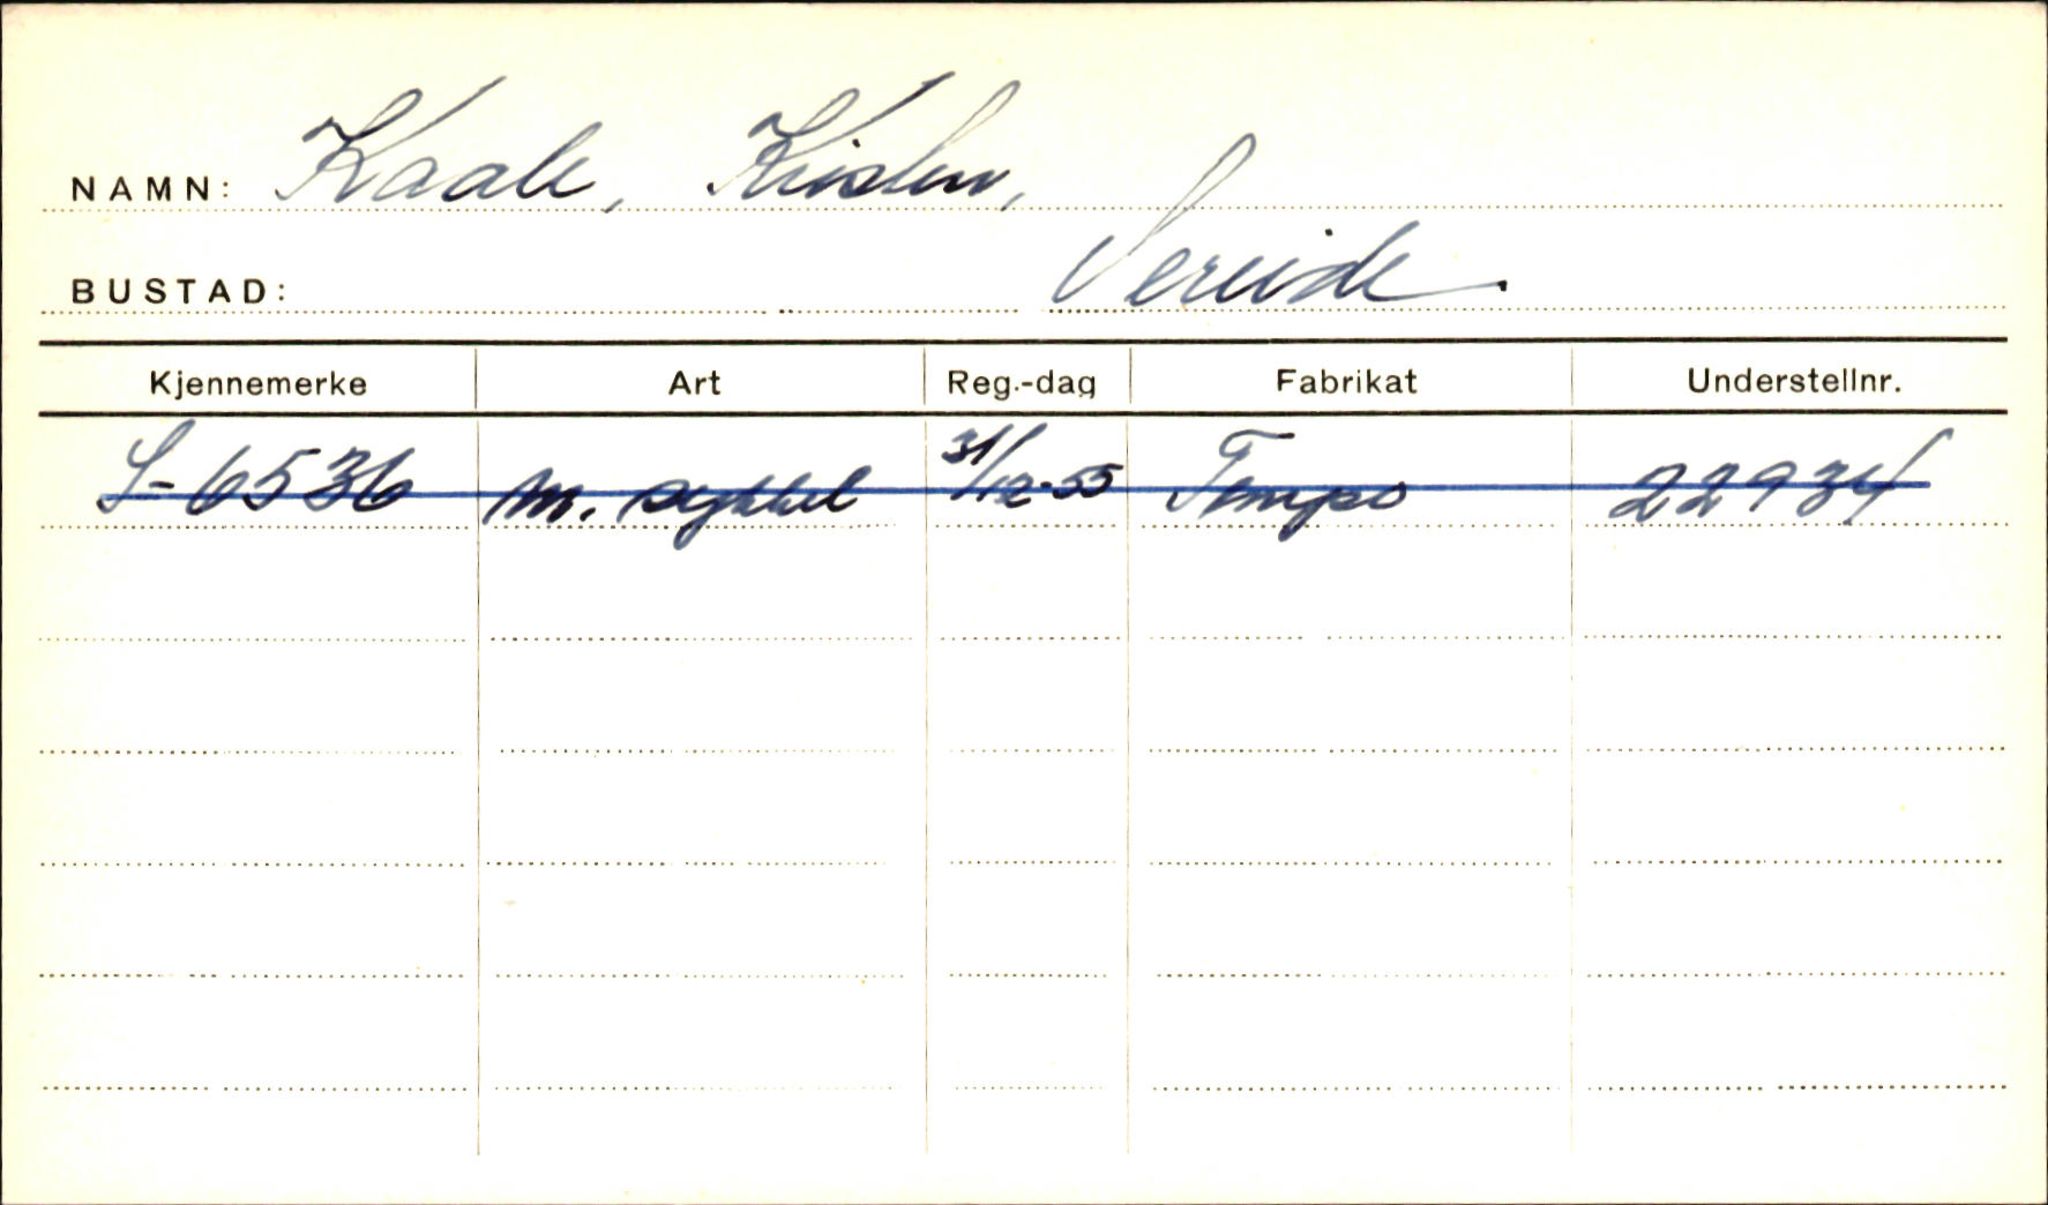 NAMN: Kaale, Kristen,
BUSTAD: Vereide.
Kjennemerke Art Reg.-dag Fabrikat Understellnr.
S-6536 M. sykkel 31/12-55 Tempo 22934